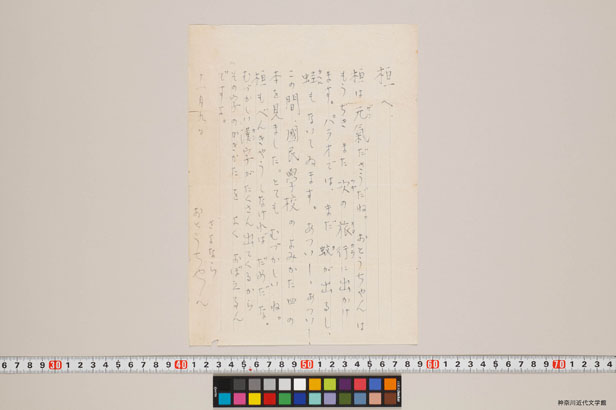 桓へ
桓は元氣ださうだね。おとうちやんは
もうぢきまた次の旅行に出かけ
ます。パラオでは、まだ蚊が出るし、
蝉もないてゐます。あついー、あついー
この間、國民學校のよみかた四の
本を見ました。とてもむづかしいね。
桓もべんきやうしなければだめだな。
むづかしい漢字がたくさん出てくるから
その字のかきかたをよくおぼえるん
ですよ。
十一月九日
さよなら
おとうちやん
30 40 50 60 70
神奈川近代文学館